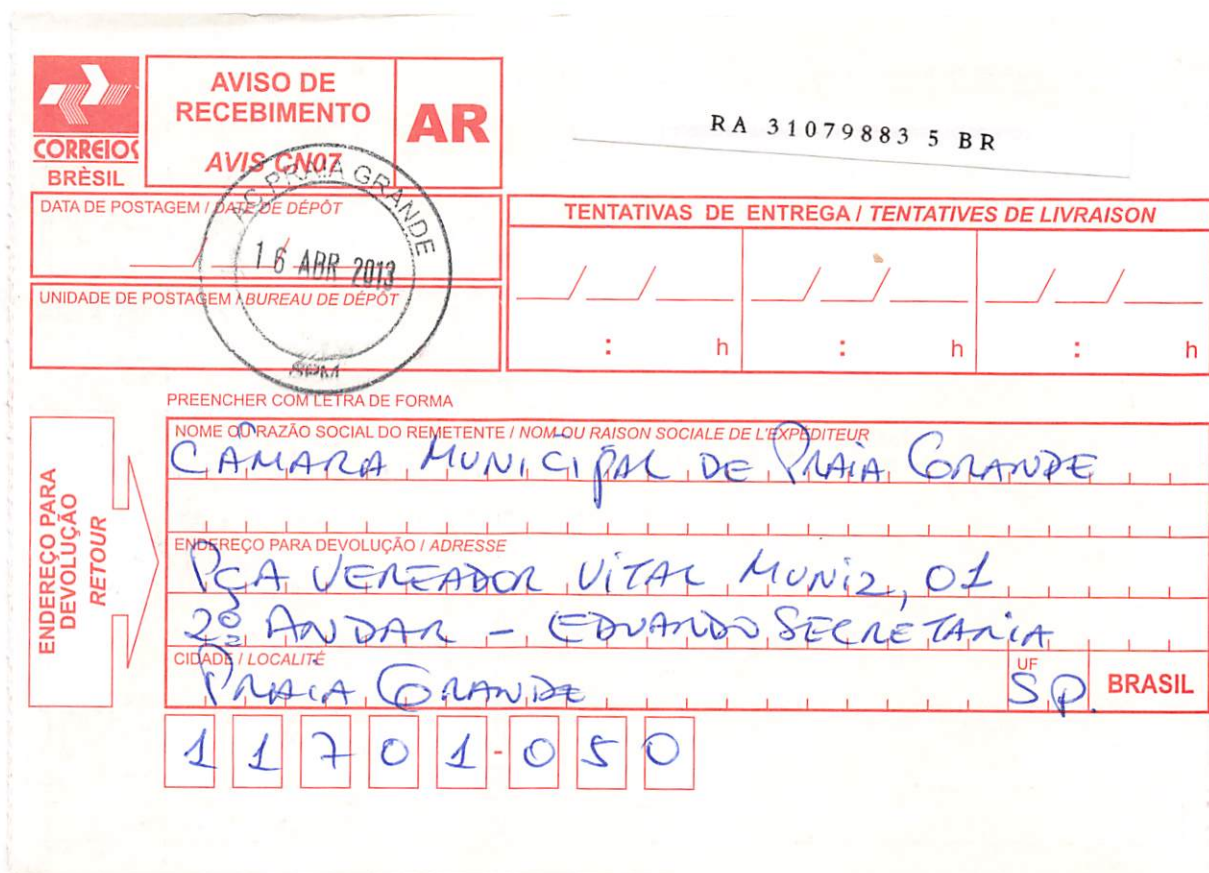 CORREIOS
BRÈSIL
AVISO DE
RECEBIMENTO
AVIS CN07
AR
RA 31079883 5 BR
DATA DE POSTAGEM / DATE DE DÉPÔT
UNIDADE DE POSTAGEM / BUREAU DE DÉPÔT
AC PRAIA GRANDE
16 ABR 2013
TENTATIVAS DE ENTREGA / TENTATIVES DE LIVRAISON
: h : h : h
PREENCHER COM LETRA DE FORMA
ENDEREÇO PARA
DEVOLUÇÃO
RETOUR
NOME OU RAZÃO SOCIAL DO REMETENTE / NOM OU RAISON SOCIALE DE L'EXPÉDITEUR
CÂMARA MUNICIPAL DE PRAIA GRANDE
ENDEREÇO PARA DEVOLUÇÃO / ADRESSE
PÇA VEREADOR VITAL MUNIZ, 01
2º ANDAR - EDUARDO SECRETARIA
CIDADE / LOCALITÉ
PRAIA GRANDE
UF
SP.
BRASIL
11701-050